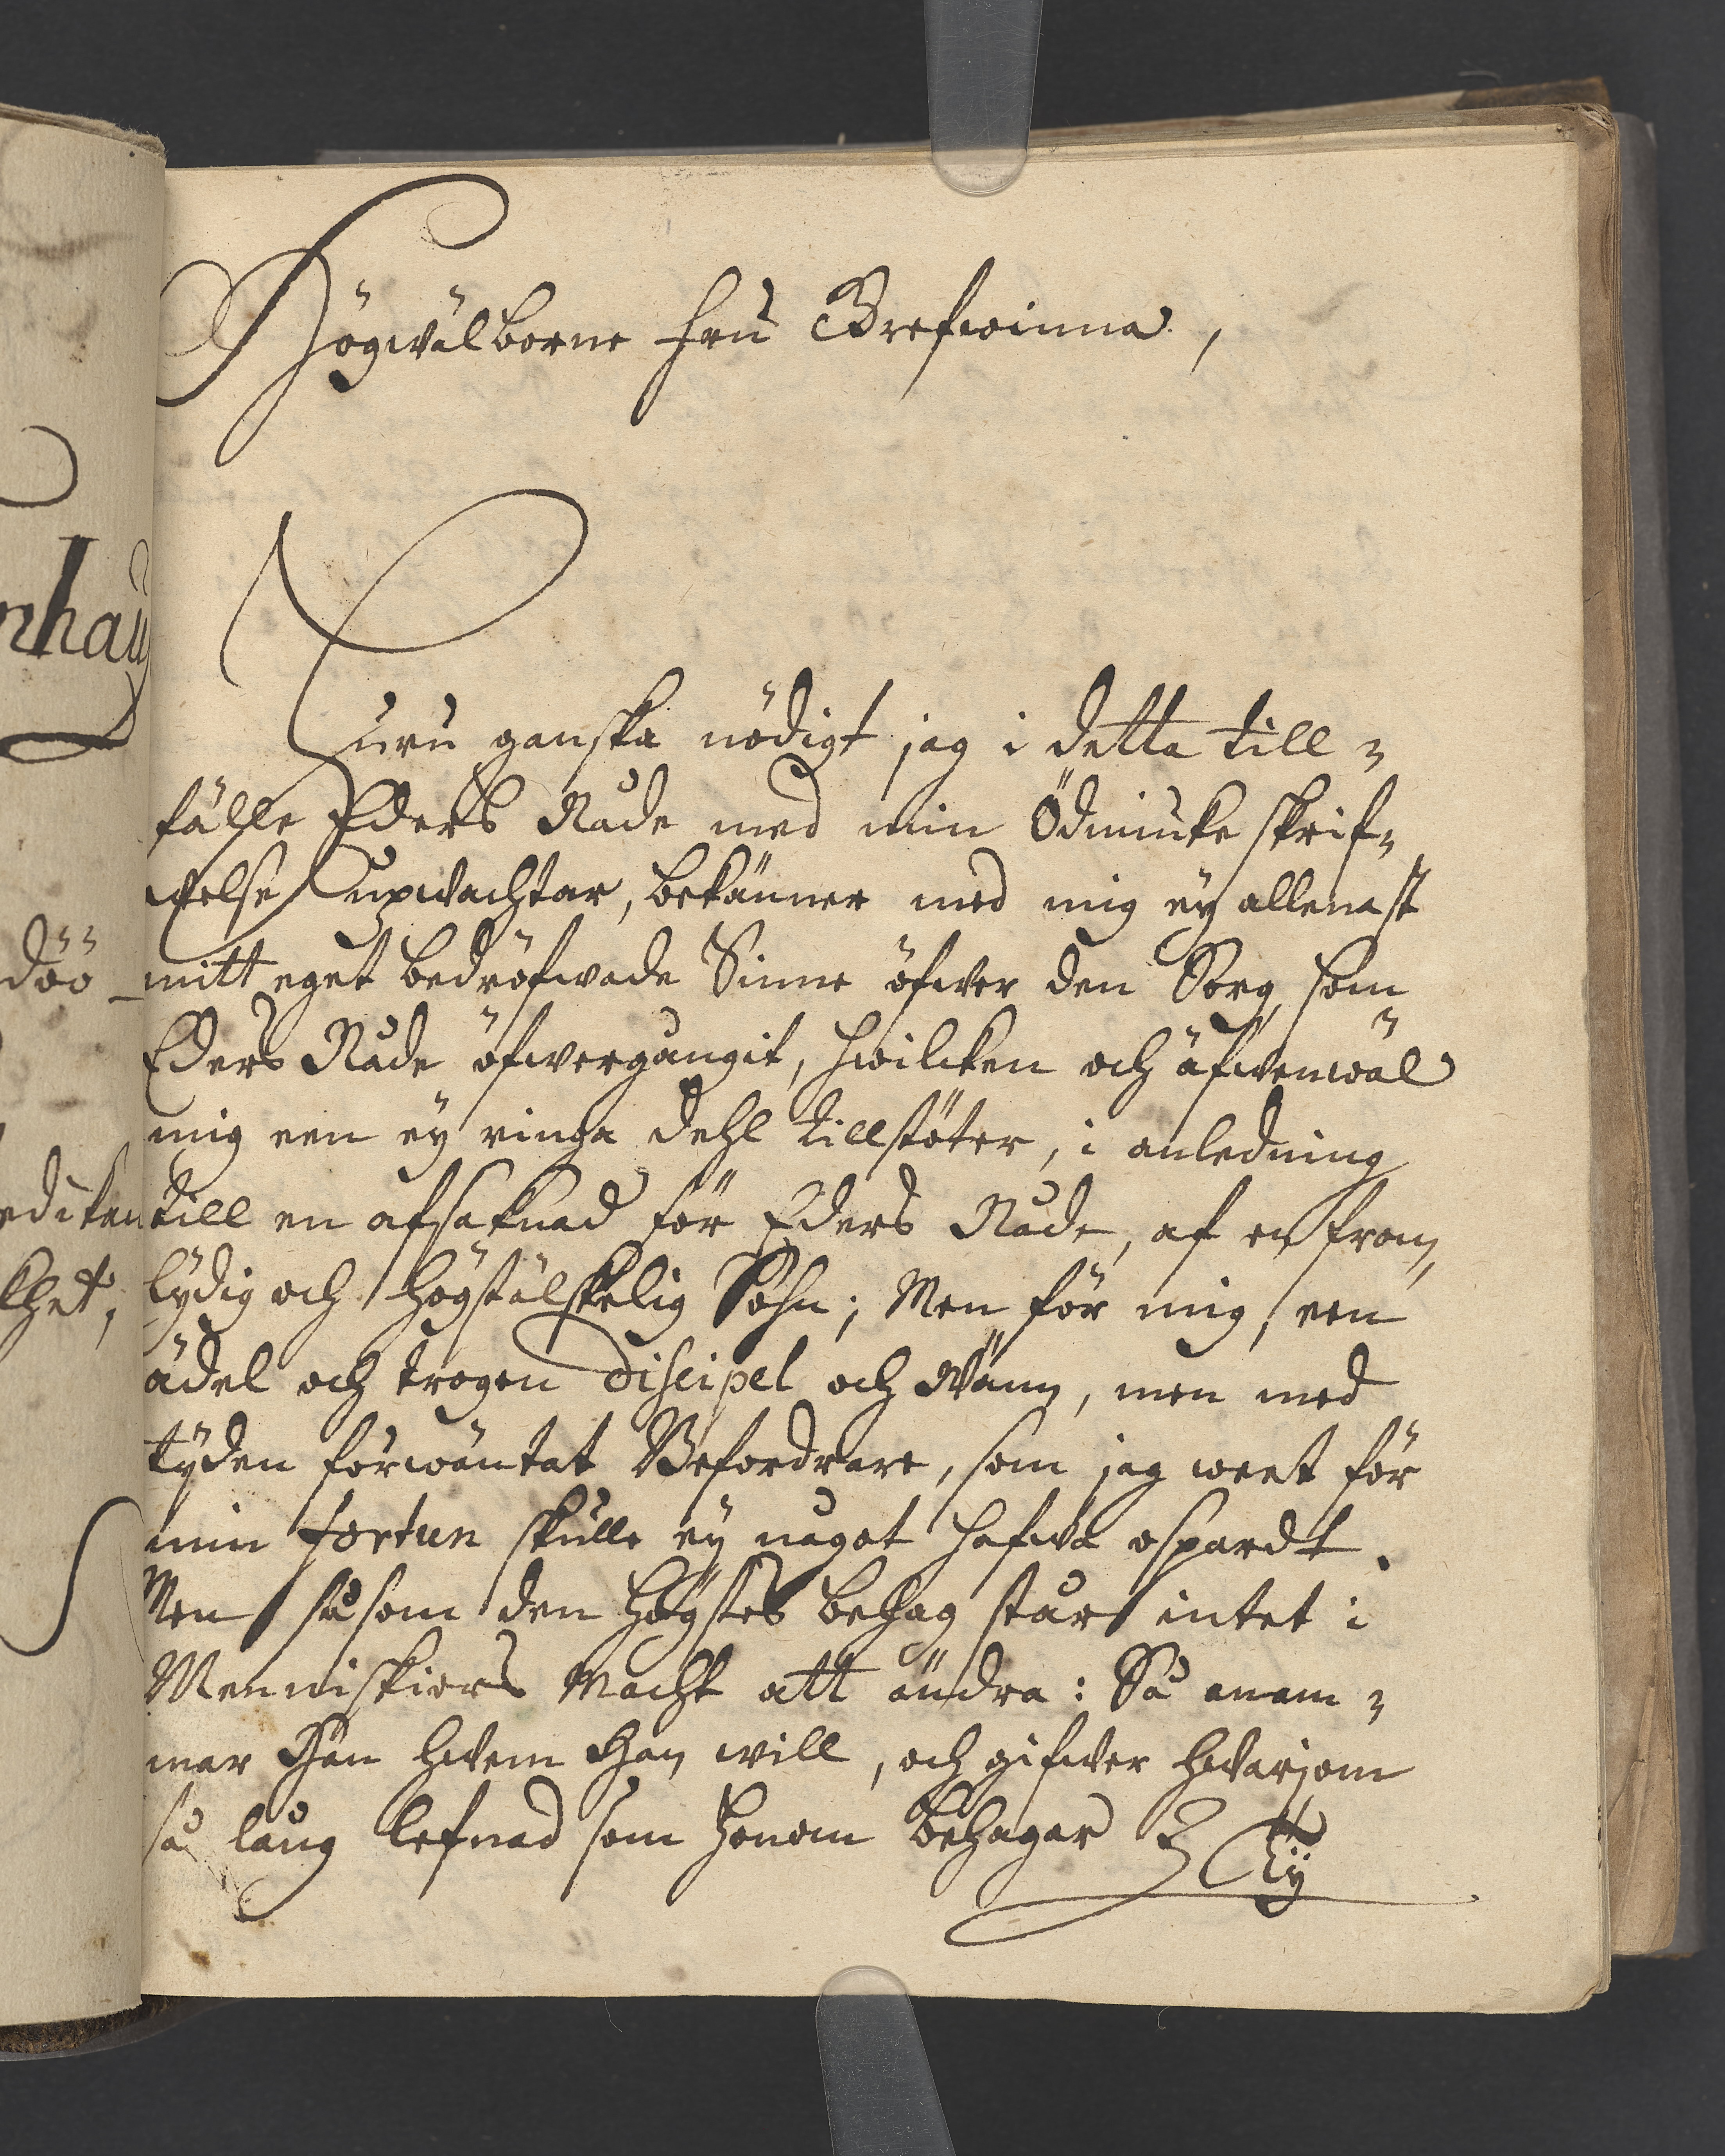 Högwälborne fru Grefwinna,
Huru ganska nödigt jag i detta till-
fälle Eders Nåde med min Ödmiuke skrif-
welse upwachtar, bekänner med mig ey allenast
mitt eget bedröfwade Sinne öfwer den Sorg, som
Eders Nåde öfwergångit, hwilcken och äfwenwäl
mig een ey ringa dehl tillstöter, i anledning
till en afsaknad för Eders Nåde, af en from,
lydig och högstälskelig Sohn; Men för mig, een
ädel och trogen Discipel och Wänn, men med
tyden förwäntat Befordrare, som jag weet för
min fortun skulle ey något hafwa ospardt.
Men såsom den Högstes behag står intet i
Menniskiors Macht att ändra: Så anam-
mar Han hwem Han will, och gifwer hwarjom
så lång lefnad som honom behagar
Ty
nhau
döö
ediken
lhet;